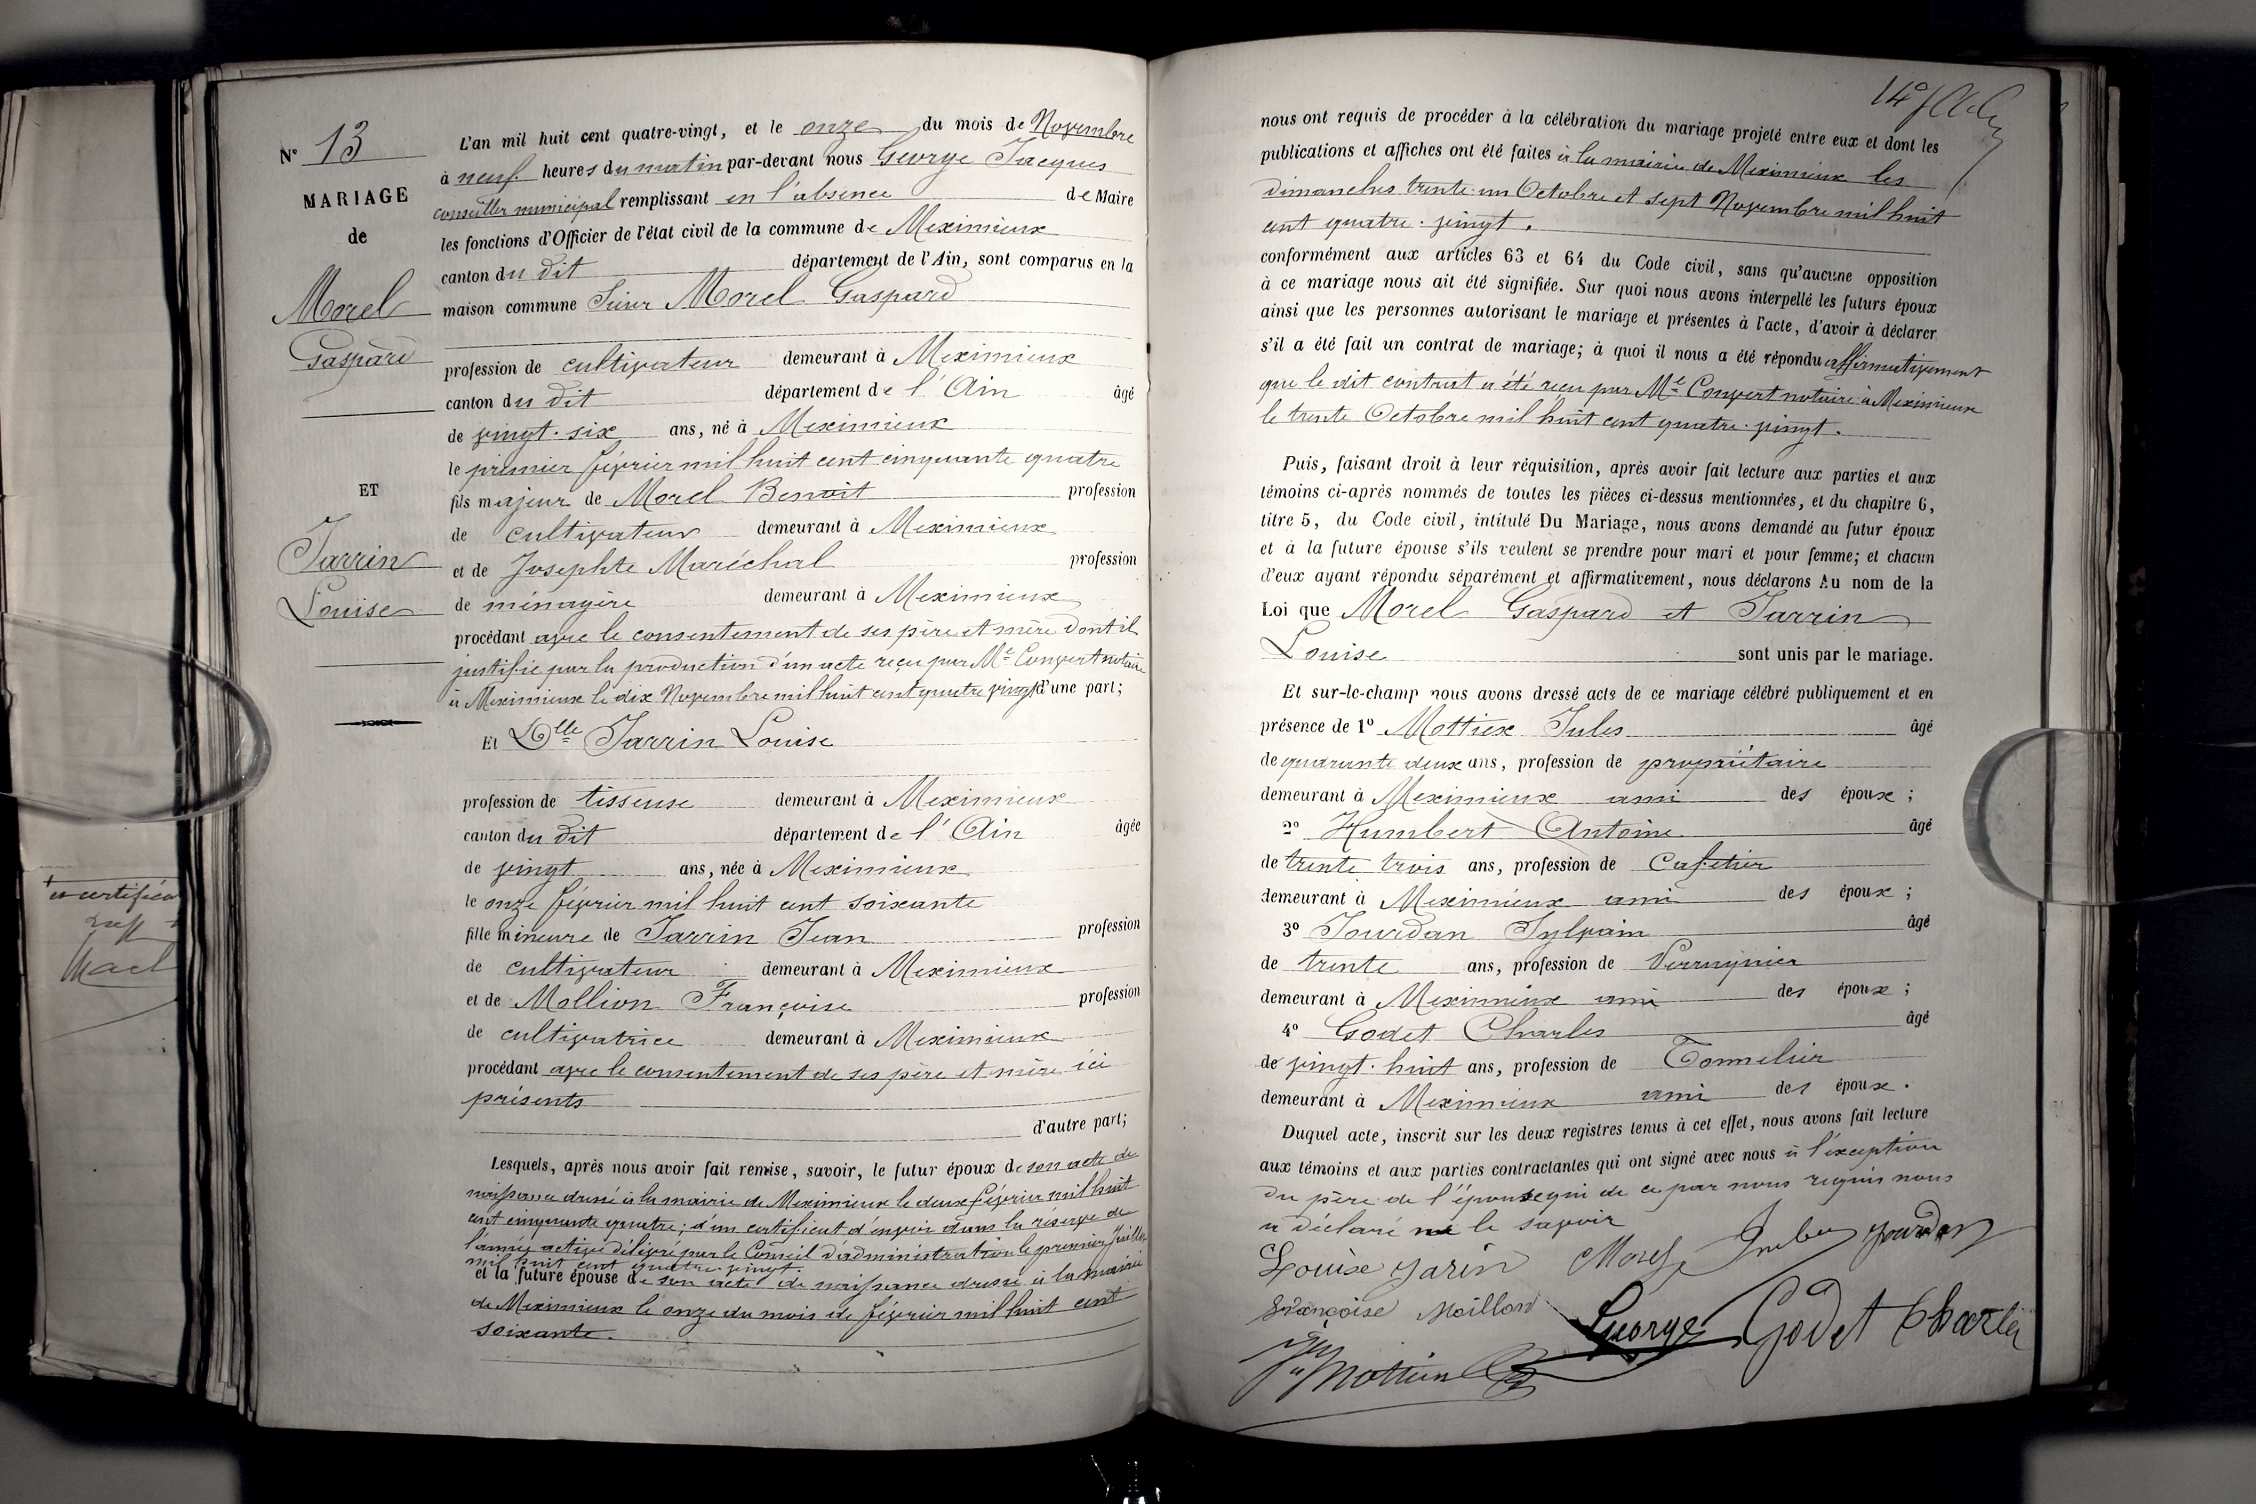 N° 13
MARIAGE
de
Morel
Gaspard
ET
Jarrin
Louise
L'an mil huit cent quatre-vingt, et le onze du mois de Novembre
à neuf heures du matin par-devant nous George Jacques
conseiller municipal remplissant en l'absence de Maire
les fonctions d'Officier de l'état civil de la commune de Meximieux
canton du dit département de l'Ain, sont comparus en la
maison commune Sieur Morel Gaspard
profession de cultivateur demeurant à Meximieux
canton du dit département de l'Ain âgé
de vingt-six ans, né à Meximieux
le premier février mil huit cent cinquante quatre
fils majeur de Morel Benoit profession
de cultivateur demeurant à Meximieux
et de Josephte Maréchal profession
de ménagère demeurant à Meximieux
procédant avec le consentement de ses père et mère dont il
justifie par la production d'un acte reçu par Me Convert notaire
à Meximieux le dix Novembre mil huit cent quatre vingt d'une part;
Et Dlle Jarrin Louise
profession de tisseuse demeurant à Meximieux
canton du dit département de l'Ain âgée
de vingt ans, née à Meximieux
le onze février mil huit cent soixante
fille mineure de Jarrin Jean profession
de cultivateur demeurant à Meximieux
et de Mollion Françoise profession
de cultivatrice demeurant à Meximieux
procédant avec le consentement de ses père et mère ici
présents
d'autre part;
Lesquels, après nous avoir fait remise, savoir, le futur époux de son acte de
naissance dressé à la mairie de Meximieux le deux février mil huit
cent cinquante quatre; d'un certificat d'envoi dans la réserve de
l'armée active délivré par le Conseil d'administration le premier Juillet
mil huit cent quatre vingt.
et la future épouse de son acte de naissance dressé à la mairie
de Meximieux le onze du mois de février mil huit cent
soixante.
14e
nous ont requis de procéder à la célébration du mariage projeté entre eux et dont les
publications et affiches ont été faites à la mairie de Meximieux les
dimanches trente-un Octobre et sept Novembre mil huit
cent quatre-vingt.
conformément aux articles 63 et 64 du Code civil, sans qu'aucune opposition
à ce mariage nous ait été signifiée. Sur quoi nous avons interpellé les futurs époux
ainsi que les personnes autorisant le mariage et présentes à l'acte, d'avoir à déclarer
s'il a été fait un contrat de mariage; à quoi il nous a été répondu affirmativement
que le dit contrat a été reçu par Me Convert notaire à Meximieux
le trente Octobre mil huit cent quatre-vingt.
Puis, faisant droit à leur réquisition, après avoir fait lecture aux parties et aux
témoins ci-après nommés de toutes les pièces ci-dessus mentionnées, et du chapitre 6,
titre 5, du Code civil, intitulé Du Mariage, nous avons demandé au futur époux
et à la future épouse s'ils veulent se prendre pour mari et pour femme; et chacun
d'eux ayant répondu séparément et affirmativement, nous déclarons Au nom de la
Loi que Morel Gaspard et Jarrin
Louise sont unis par le mariage.
Et sur-le-champ nous avons dressé acte de ce mariage célébré publiquement et en
présence de 1° Mottiex Jules âgé
de quarante deux ans, profession de propriétaire
demeurant à Meximieux ami des époux;
2° Humbert Antoine âgé
de trente trois ans, profession de Cafetier
demeurant à Meximieux ami des époux;
3° Jourdan Sylvain âgé
de trente ans, profession de
demeurant à Meximieux ami des époux;
4° Godet Charles âgé
de vingt-huit ans, profession de Tonnelier
demeurant à Meximieux ami des époux.
Duquel acte, inscrit sur les deux registres tenus à cet effet, nous avons fait lecture
aux témoins et aux parties contractantes qui ont signé avec nous à l'exception
du père de l'épouse qui de ce par nous requis nous
a déclaré ne le savoir
Louise jarin Morel jourdan
françoise Moillon George Godet Charles
Mottiex